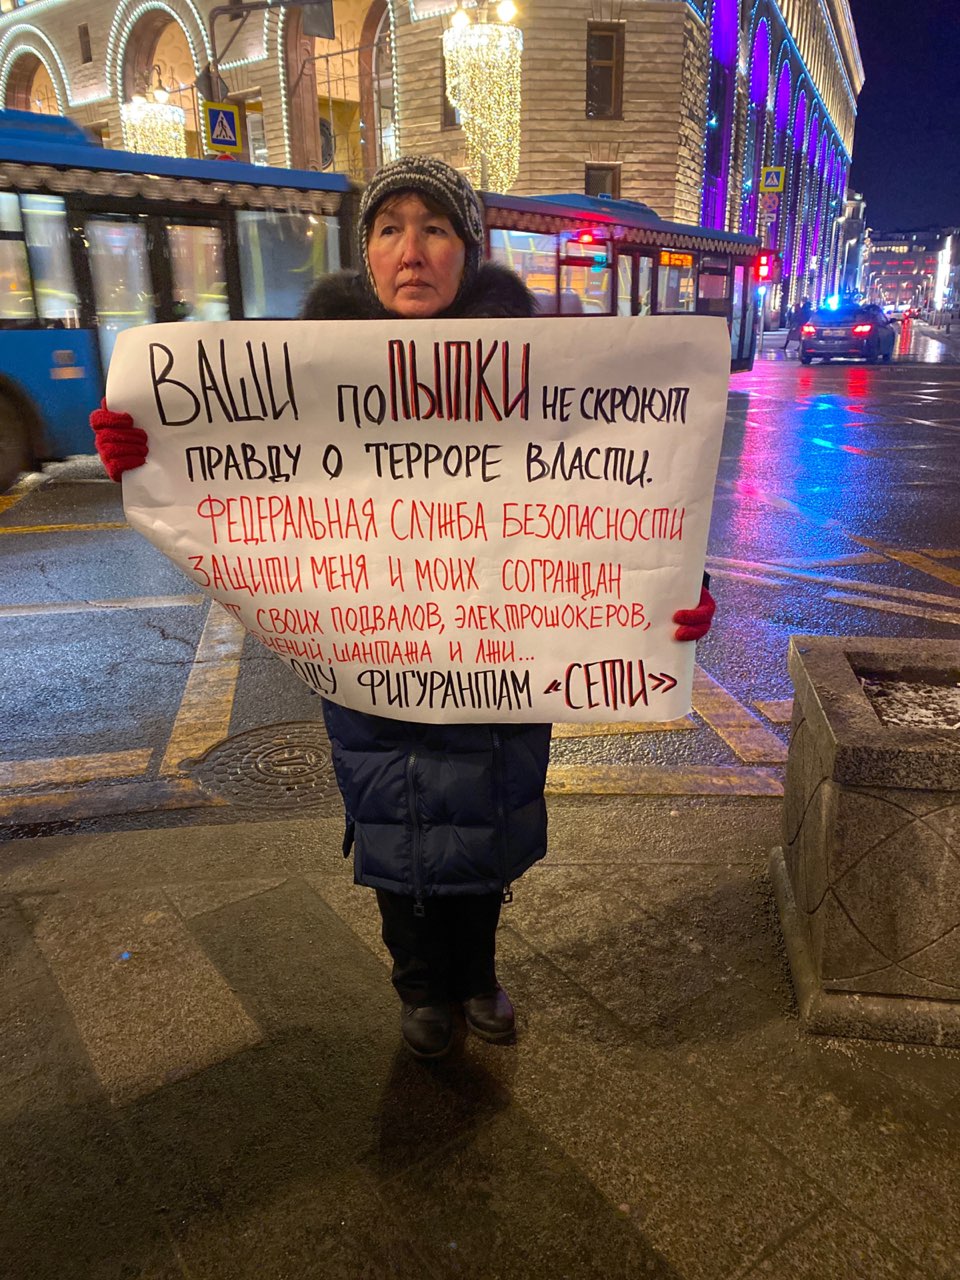 ВАШИ поПЫТКИ НЕ СКРОЮТ
ПРАВДУ О ТЕРРОРЕ ВЛАСТИ.
ФЕДЕРАЛЬНАЯ СЛУЖБА БЕЗОПАСНОСТИ
ЗАЩИТИ МЕНЯ И МОИХ СОГРАЖДАН
СВОИХ ПОДВАЛОВ, ЭЛЕКТРОШОКЕРОВ,
ШАНТАЖА И ЛЖИ...
ФИГУРАНТАМ «СЕТИ»